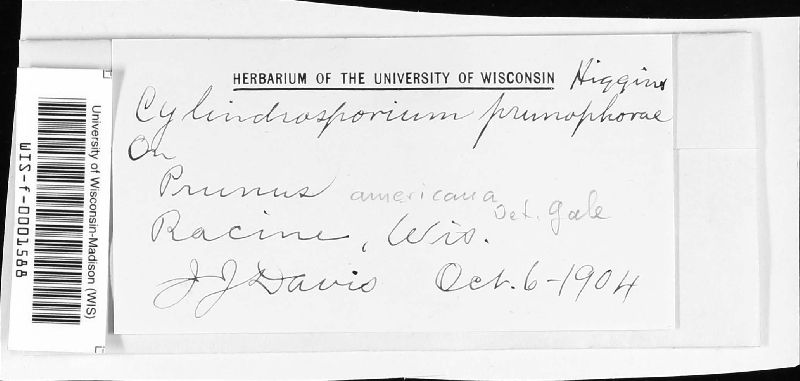 HERBARIUM OF THE UNIVERSITY OF WISCONSIN Higgins
Cylindrosporium prunophorae
On
Prunus americana
Det. Gale
Racine, Wis.
J J Davis Oct. 6-1904
University of Wisconsin-Madison (WIS)
WIS-f-0001588